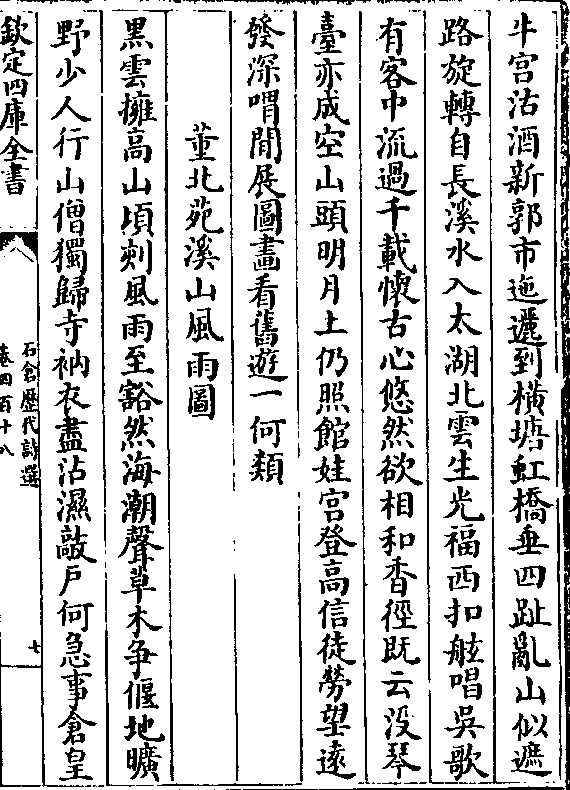 斗宫沽酒新郭市迤邐到橫塘虹橋垂四趾亂山似遮
路旋轉自長溪水入太湖北雲生光福西扣舷唱吳歌
有客中流過千載懷古心悠然欲相和香徑既云没琴
臺亦成空山頭明月上仍照館娃宫登高信徒勞望遠
發深喟閒展圖畫看舊遊一何類
董北苑溪山風雨圖
黑雲擁高山頃刻風雨至豁然海潮聲草木争偃地曠
野少人行山僧獨歸寺衲衣盡沾濕敲户何急事倉皇
欽定四庫全書
石倉歷代詩選
卷四百十八
七